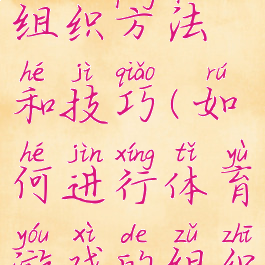 组织方法
hé jì qiǎo rú
和技巧(如
hé jìn xíng tǐ yù
何进行体育
yóu xì de zǔ zhī
游戏的组织